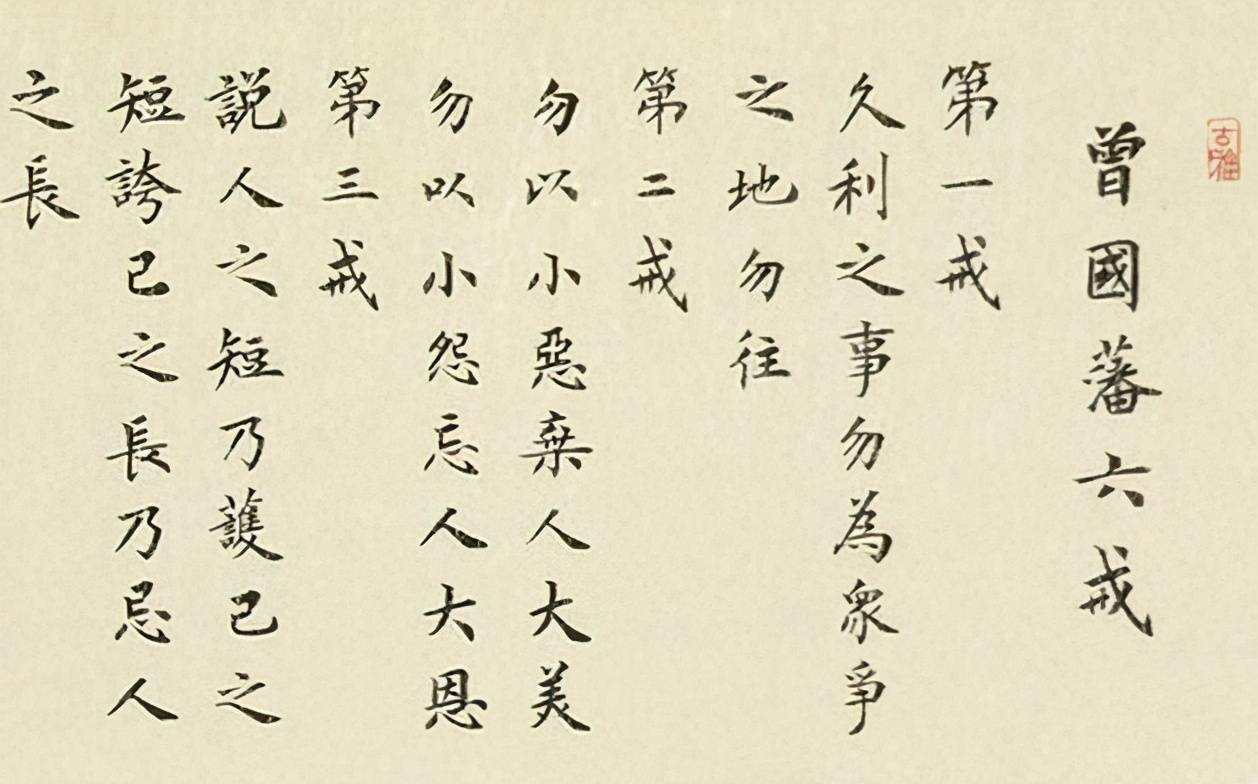 古雅
曾國藩六戒
第一戒
久利之事勿為衆爭
之地勿往
第二戒
勿以小惡棄人大美
勿以小怨忘人大恩
第三戒
説人之短乃護己之
短誇己之長乃忌人
之長